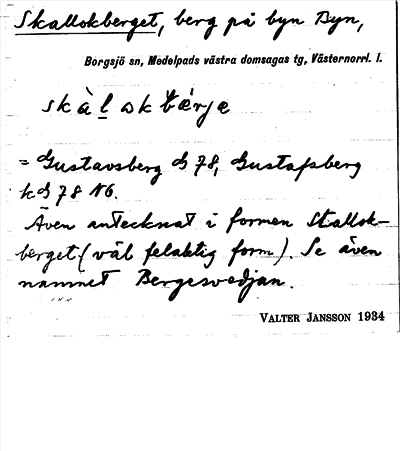 Skallokberget, berg på byn Byn,
Borgsjö sn, Medelpads västra domsagas tg, Västernorrl. l.
skàlokbærjæ
= Gustavsberg G 78, Gustafsberg
k G 78 N6.
Även antecknat i formen Stallok-
berget (väl felaktig form). Se även
namnet Bergesvedjan.
VALTER JANSSON 1934